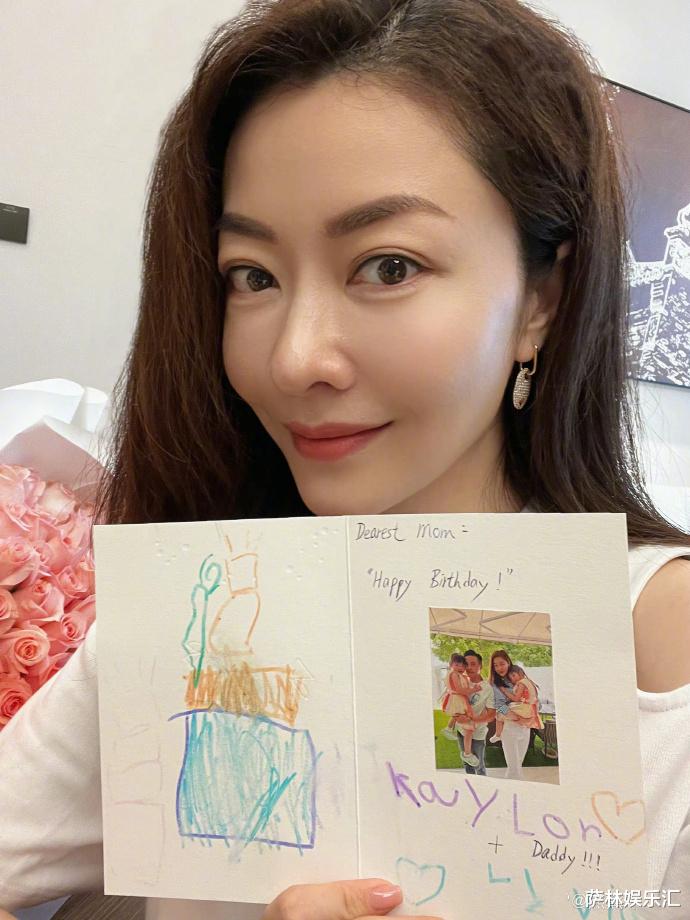 Dearest Mom =
"Happy Birthday!"
Kaylon
+ Daddy!!!
@萨林娱乐汇